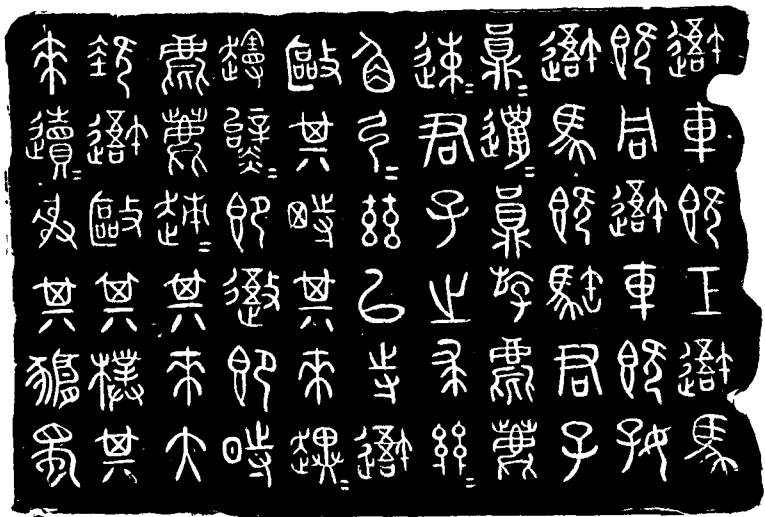 避車既工避馬
既同避車既好
避馬既駐君子
員=邋=員斿麀鹿
速=君子之求
角弓=茲以寺避
敺其特其來趩=
即禦即時
麀鹿趚=其來大
次避敺其樸其
來遺=射其豜蜀